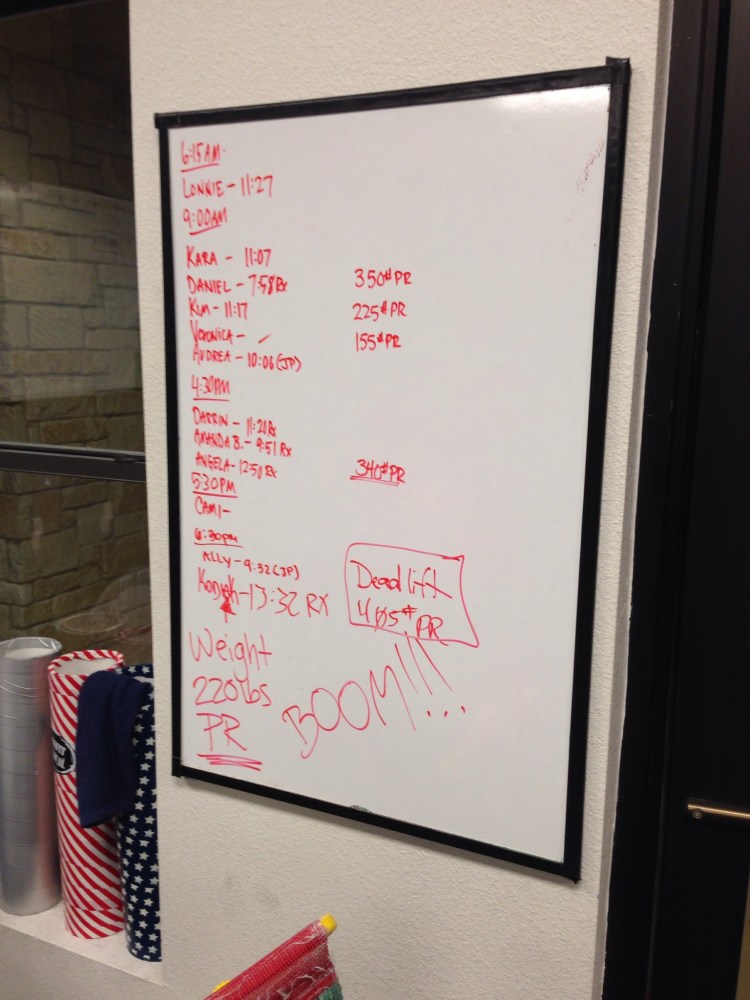 6:15AM
LONNIE - 11:27
9:00AM
KARA - 11:07
DANIEL - 7:58 Rx 350# PR
KIM - 11:17 225# PR
VERONICA - 155# PR
AUDREA - 10:06 (JP)
4:30PM
DARRIN - 11:21 Rx
AMANDA B. - 9:51 Rx
ANGELA - 12:50 Rx 340# PR
5:30PM
CAMI -
6:30pm
ALLY - 9:32 (JP)
KODIAK - 13:32 RX
Deadlift
405# PR
Weight
220lbs
PR
BOOM!!!...